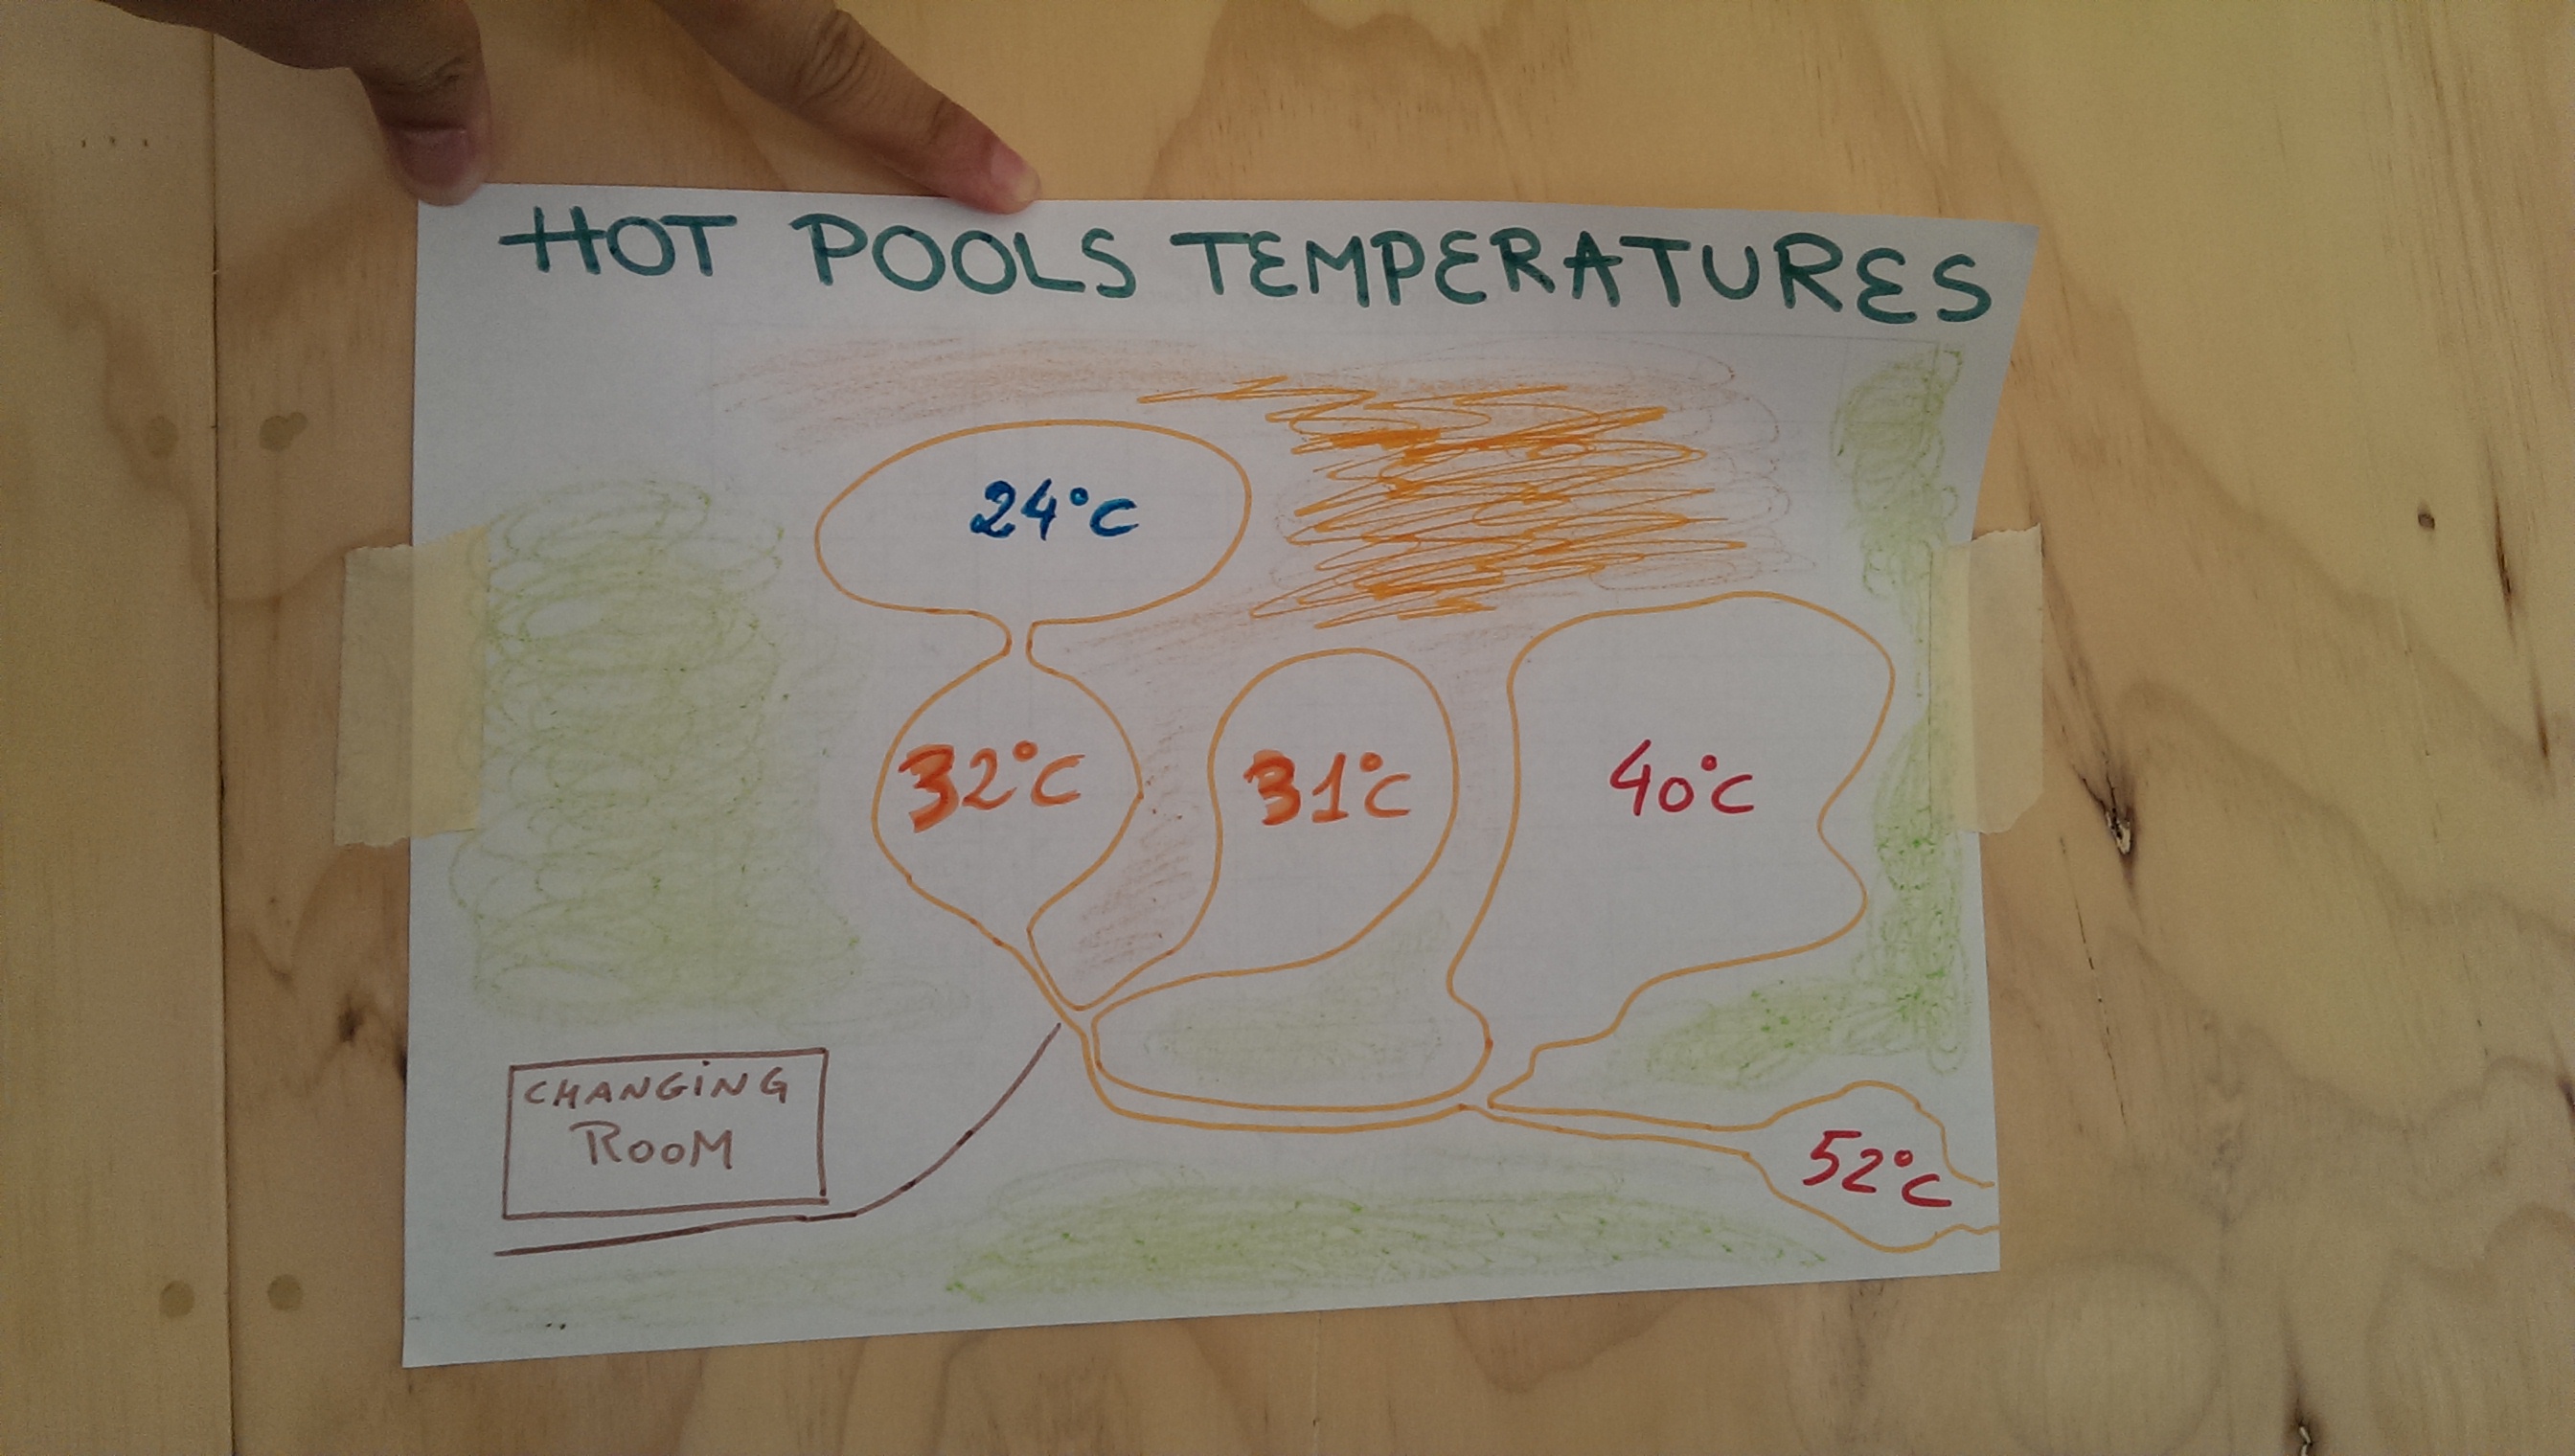 HOT POOLS TEMPERATURES
24°C
32°C
31°C
40°C
CHANGING
ROOM
52°C